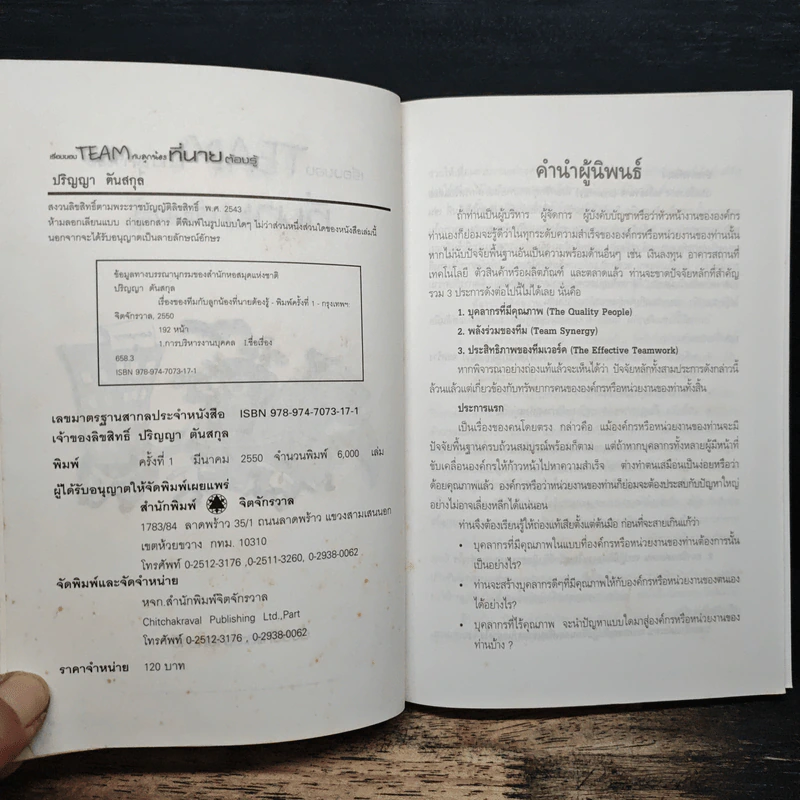 เรื่องของ TEAM กับลูกน้อง ที่นาย ต้องรู้
ปริญญา ตันสกุล
สงวนลิขสิทธิ์ตามพระราชบัญญัติลิขสิทธิ์ พ.ศ. 2543
ห้ามลอกเลียนแบบ ถ่ายเอกสาร ตีพิมพ์ในรูปแบบใดๆ ไม่ว่าส่วนหนึ่งส่วนใดของหนังสือเล่มนี้
นอกจากจะได้รับอนุญาตเป็นลายลักษณ์อักษร
ข้อมูลทางบรรณานุกรมของสำนักหอสมุดแห่งชาติ
ปริญญา ตันสกุล
เรื่องของทีมกับลูกน้องที่นายต้องรู้ - พิมพ์ครั้งที่ 1 - กรุงเทพฯ
จิตจักรวาล, 2550
192 หน้า
1.การบริหารงานบุคคล I.ชื่อเรื่อง
658.3
ISBN 978-974-7073-17-1
เลขมาตรฐานสากลประจำหนังสือ ISBN 978-974-7073-17-1
เจ้าของลิขสิทธิ์ ปริญญา ตันสกุล
พิมพ์ ครั้งที่ 1 มีนาคม 2550 จำนวนพิมพ์ 6,000 เล่ม
ผู้ได้รับอนุญาตให้จัดพิมพ์เผยแพร่
สำนักพิมพ์ จิตจักรวาล
1783/84 ลาดพร้าว 35/1 ถนนลาดพร้าว แขวงสามเสนนอก
เขตห้วยขวาง กทม. 10310
โทรศัพท์ 0-2512-3176 ,0-2511-3260, 0-2938-0062
จัดพิมพ์และจัดจำหน่าย
หจก.สำนักพิมพ์จิตจักรวาล
Chitchakraval Publishing Ltd.,Part
โทรศัพท์ 0-2512-3176 , 0-2938-0062
ราคาจำหน่าย 120 บาท
คำนำผู้นิพนธ์
ถ้าท่านเป็นผู้บริหาร ผู้จัดการ ผู้บังคับบัญชาหรือว่าหัวหน้างานขององค์กร
ท่านเองก็ย่อมจะรู้ดีว่าในทุกระดับความสำเร็จขององค์กรหรือหน่วยงานของท่านนั้น
หากไม่นับปัจจัยพื้นฐานอันเป็นความพร้อมด้านอื่นๆ เช่น เงินลงทุน อาคารสถานที่
เทคโนโลยี ตัวสินค้าหรือผลิตภัณฑ์ และตลาดแล้ว ท่านจะขาดปัจจัยหลักที่สำคัญ
รวม 3 ประการดังต่อไปนี้ไม่ได้เลย นั่นคือ
1. บุคลากรที่มีคุณภาพ (The Quality People)
2. พลังร่วมของทีม (Team Synergy)
3. ประสิทธิภาพของทีมเวอร์ค (The Effective Teamwork)
หากพิจารณาอย่างถ่องแท้แล้วจะเห็นได้ว่า ปัจจัยหลักทั้งสามประการดังกล่าวนี้
ล้วนแล้วแต่เกี่ยวข้องกับทรัพยากรคนขององค์กรหรือหน่วยงานของท่านทั้งสิ้น
ประการแรก
เป็นเรื่องของคนโดยตรง กล่าวคือ แม้องค์กรหรือหน่วยงานของท่านจะมี
ปัจจัยพื้นฐานครบถ้วนสมบูรณ์พร้อมก็ตาม แต่ถ้าหากบุคลากรทั้งหลายผู้มีหน้าที่
ขับเคลื่อนองค์กรให้ก้าวหน้าไปหาความสำเร็จ ต่างทำตนเสมือนเป็นง่อยหรือว่า
ด้อยคุณภาพแล้ว องค์กรหรือหน่วยงานของท่านก็ย่อมจะต้องประสบกับปัญหาใหญ่
อย่างไม่อาจเลี่ยงหลีกได้แน่นอน
ท่านจึงต้องเรียนรู้ให้ถ่องแท้เสียตั้งแต่ต้นมือ ก่อนที่จะสายเกินแก้ว่า
• บุคลากรที่มีคุณภาพในแบบที่องค์กรหรือหน่วยงานของท่านต้องการนั้น
เป็นอย่างไร?
• ท่านจะสร้างบุคลากรดีๆที่มีคุณภาพให้กับองค์กรหรือหน่วยงานของตนเอง
ได้อย่างไร?
• บุคลากรที่ไร้คุณภาพ จะนำปัญหาแบบใดมาสู่องค์กรหรือหน่วยงานของ
ท่านบ้าง ?